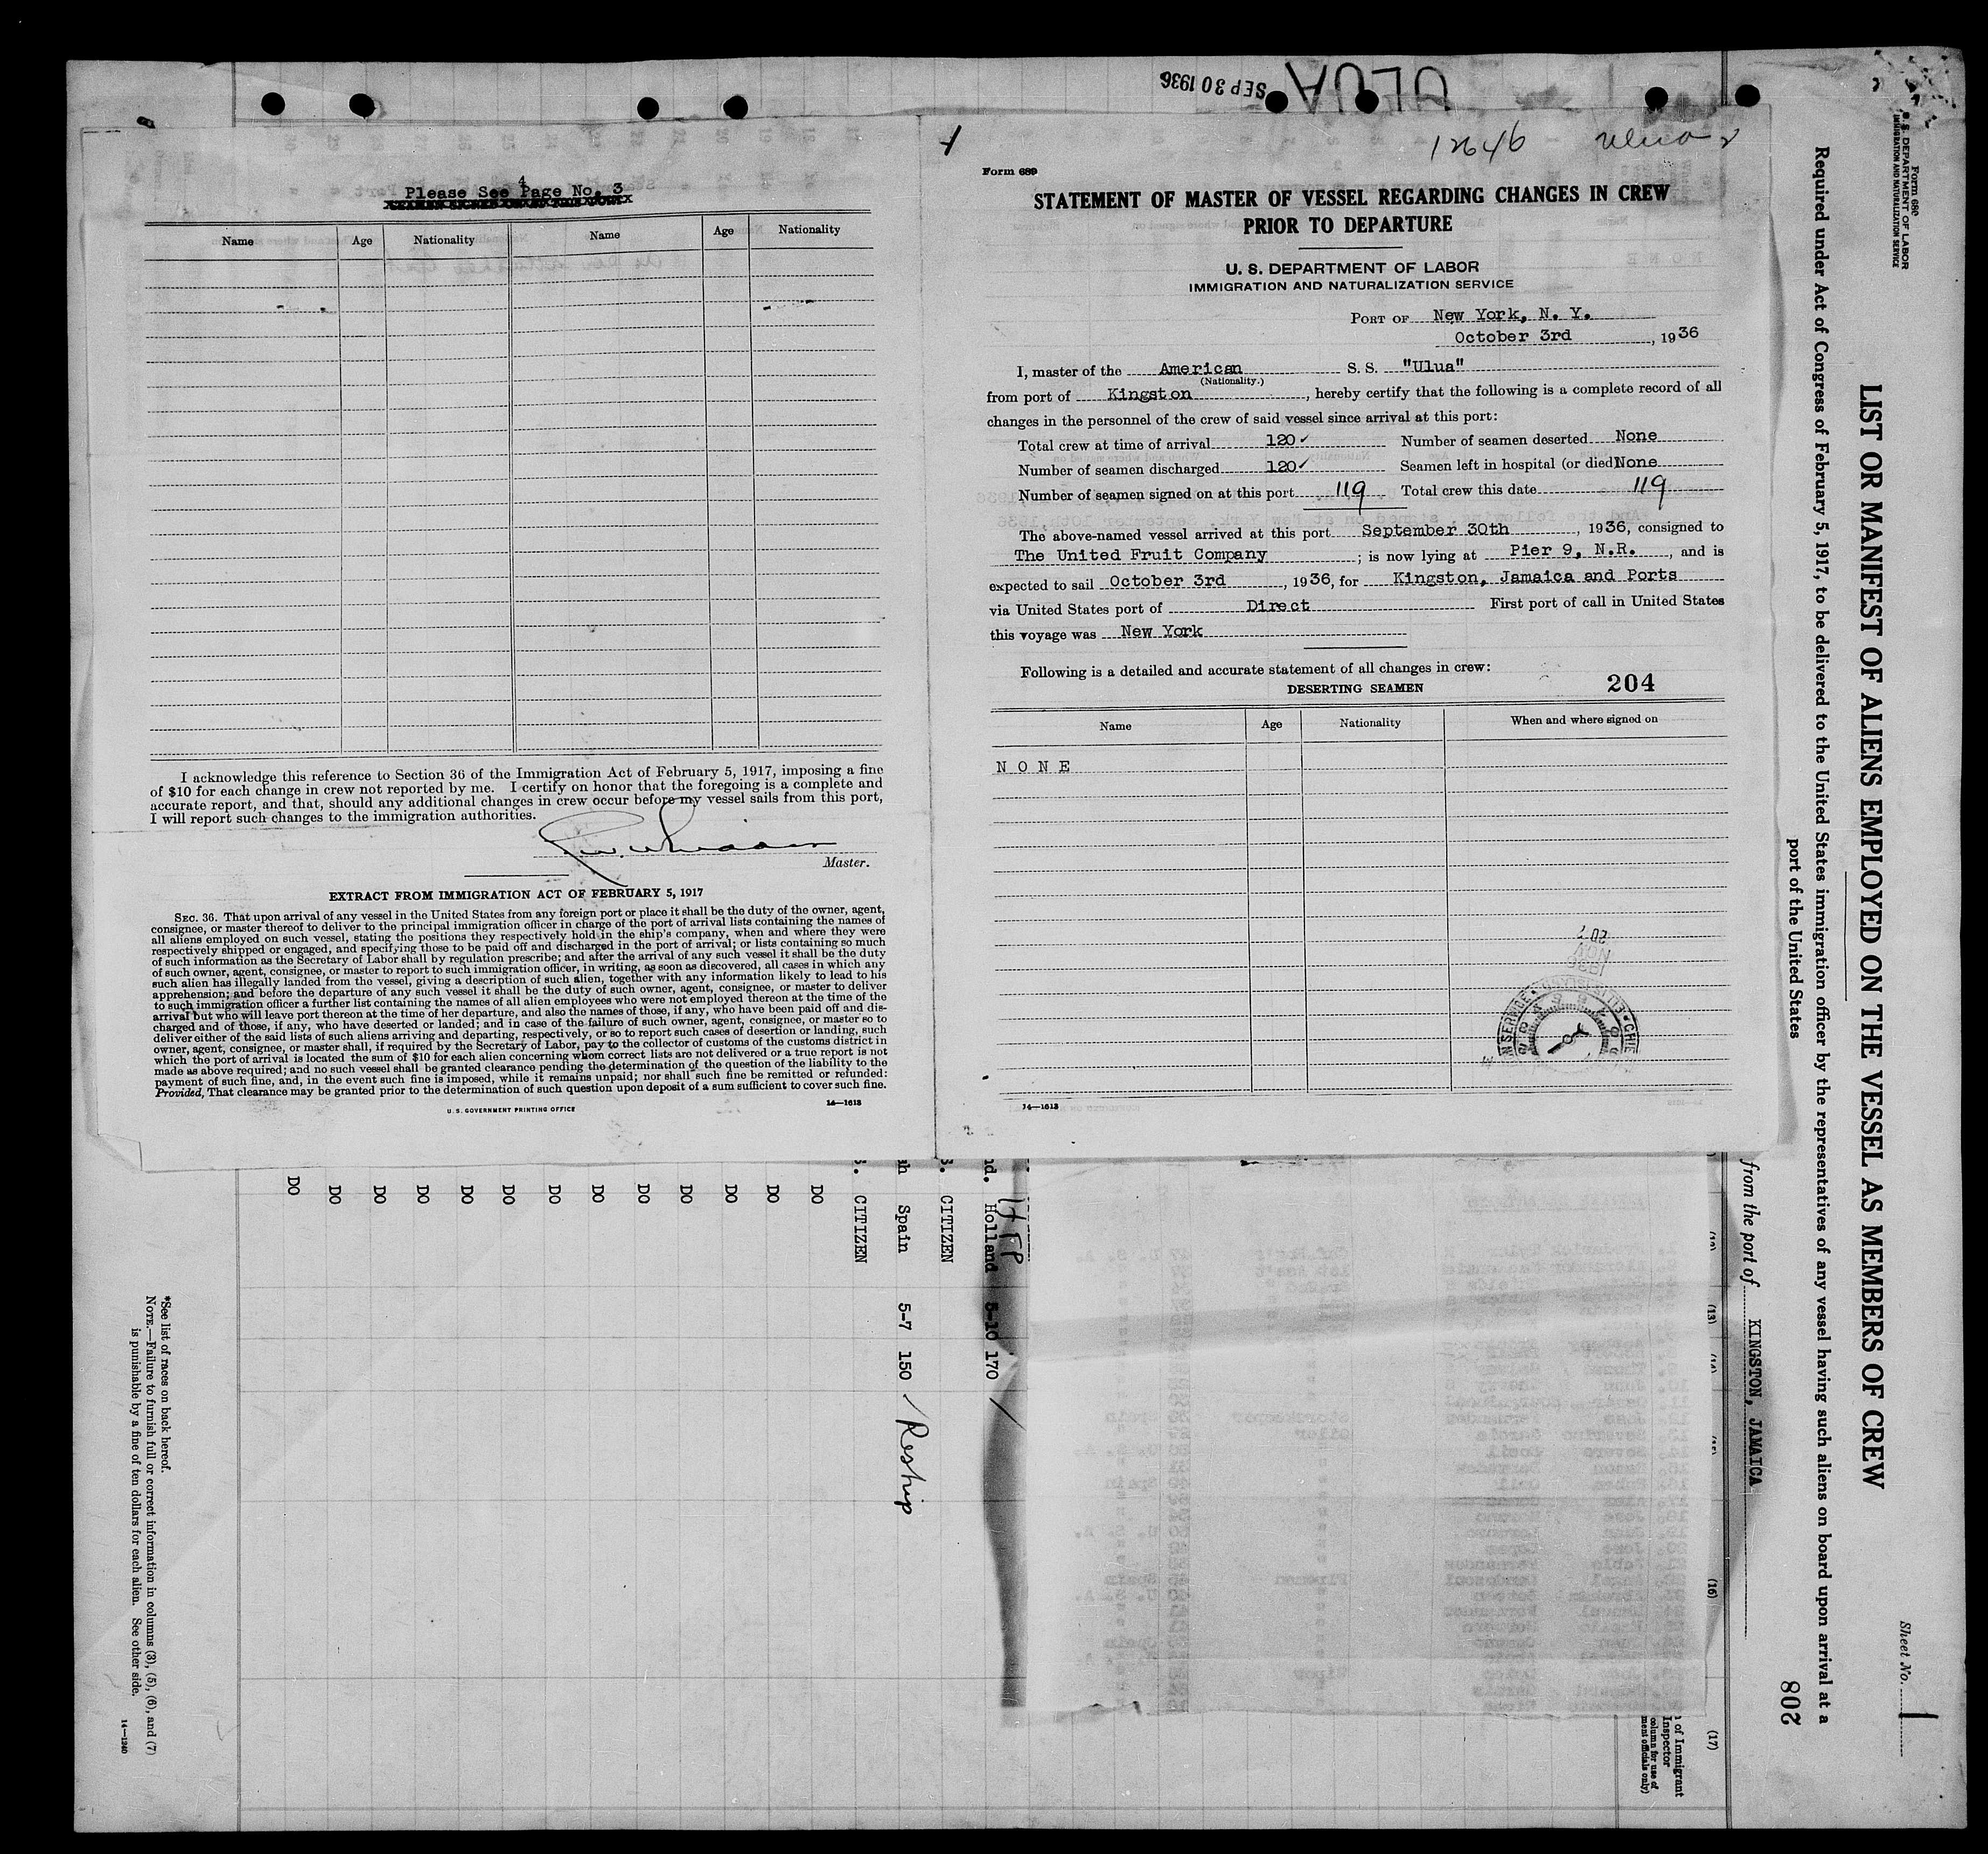 SEP 30 1936 ULUA
Please See Page No. 3
4
Name Age Nationality Name Age Nationality
I acknowledge this reference to Section 36 of the Immigration Act of February 5, 1917, imposing a fine
of $10 for each change in crew not reported by me. I certify on honor that the foregoing is a complete and
accurate report, and that, should any additional changes in crew occur before my vessel sails from this port,
I will report such changes to the immigration authorities.
Master.
EXTRACT FROM IMMIGRATION ACT OF FEBRUARY 5, 1917
SEC. 36. That upon arrival of any vessel in the United States from any foreign port or place it shall be the duty of the owner, agent,
consignee, or master thereof to deliver to the principal immigration officer in charge of the port of arrival lists containing the names of
all aliens employed on such vessel, stating the positions they respectively hold in the ship's company, when and where they were
respectively shipped or engaged, and specifying those to be paid off and discharged in the port of arrival; or lists containing so much
of such information as the Secretary of Labor shall by regulation prescribe; and after the arrival of any such vessel it shall be the duty
of such owner, agent, consignee, or master to report to such immigration officer, in writing, as soon as discovered, all cases in which any
such alien has illegally landed from the vessel, giving a description of such alien, together with any information likely to lead to his
apprehension; and before the departure of any such vessel it shall be the duty of such owner, agent, consignee, or master to deliver
to such immigration officer a further list containing the names of all alien employees who were not employed thereon at the time of the
arrival but who will leave port thereon at the time of her departure, and also the names of those, if any, who have been paid off and dis-
charged and of those, if any, who have deserted or landed; and in case of the failure of such owner, agent, consignee, or master so to
deliver either of the said lists of such aliens arriving and departing, respectively, or so to report such cases of desertion or landing, such
owner, agent, consignee, or master shall, if required by the Secretary of Labor, pay to the collector of customs of the customs district in
which the port of arrival is located the sum of $10 for each alien concerning whom correct lists are not delivered or a true report is not
made as above required; and no such vessel shall be granted clearance pending the determination of the question of the liability to the
payment of such fine, and, in the event such fine is imposed, while it remains unpaid; nor shall such fine be remitted or refunded:
Provided, That clearance may be granted prior to the determination of such question upon deposit of a sum sufficient to cover such fine.
U. S. GOVERNMENT PRINTING OFFICE 14—1613
12646 Ulua
Form 689
STATEMENT OF MASTER OF VESSEL REGARDING CHANGES IN CREW
PRIOR TO DEPARTURE
U. S. DEPARTMENT OF LABOR
IMMIGRATION AND NATURALIZATION SERVICE
PORT OF New York, N. Y.
October 3rd, 1936
I, master of the American S. S. "Ulua"
(Nationality.)
from port of Kingston, hereby certify that the following is a complete record of all
changes in the personnel of the crew of said vessel since arrival at this port:
Total crew at time of arrival 120✓ Number of seamen deserted None
Number of seamen discharged 120✓ Seamen left in hospital (or died) None
Number of seamen signed on at this port 119 Total crew this date 119
The above-named vessel arrived at this port September 30th, 1936, consigned to
The United Fruit Company; is now lying at Pier 9, N.R., and is
expected to sail October 3rd, 1936, for Kingston, Jamaica and Ports
via United States port of Direct First port of call in United States
this voyage was New York
Following is a detailed and accurate statement of all changes in crew:
DESERTING SEAMEN 204
Name Age Nationality When and where signed on
N O N E
14—1613
Form 680
U. S. DEPARTMENT OF LABOR
IMMIGRATION AND NATURALIZATION SERVICE
Sheet No. 1
LIST OR MANIFEST OF ALIENS EMPLOYED ON THE VESSEL AS MEMBERS OF CREW
Required under Act of Congress of February 5, 1917, to be delivered to the United States immigration officer by the representatives of any vessel having such aliens on board upon arrival at a
port of the United States
208
from the port of KINGSTON, JAMAICA
(13)
(16)
(17)
of Immigrant
Inspector
column for use of
ment officials only)
Holland 5-10 170 /
CITIZEN
Spain 5-7 150 / Reship
CITIZEN
DO
DO
DO
DO
DO
DO
DO
DO
DO
DO
DO
DO
DO
*See list of races on back hereof.
NOTE.—Failure to furnish full or correct information in columns (3), (5), (6), and (7)
is punishable by a fine of ten dollars for each alien. See other side.
14—1240